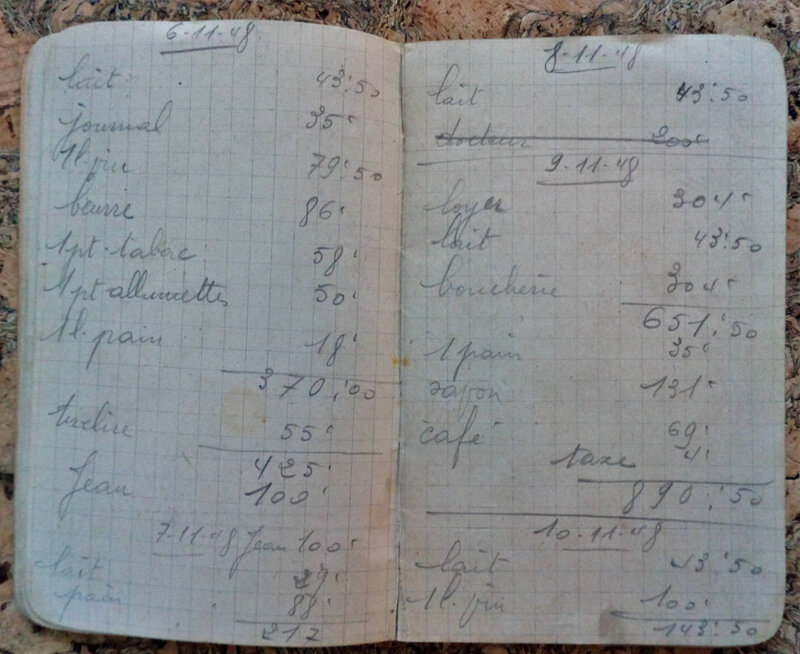 6-11-48
lait 43'50
journal 35'
1l. vin 79'50
beurre 86'
1 pt. tabac 58'
1 pt allumettes 50'
1l. pain 18'
370'00
tirelire 55'
425'
Jean 100'
7-11-48 Jean 100'
lait 29'
pain 88'
217
8-11-48
lait 43'50
docteur 200'
9-11-48
loyer 304'
lait 43'50
boucherie 304'
651'50
1 pain 35'
savon 131'
café 69'
taxe 4'
890'50
10-11-48
lait 43'50
1l. vin 100'
143'50